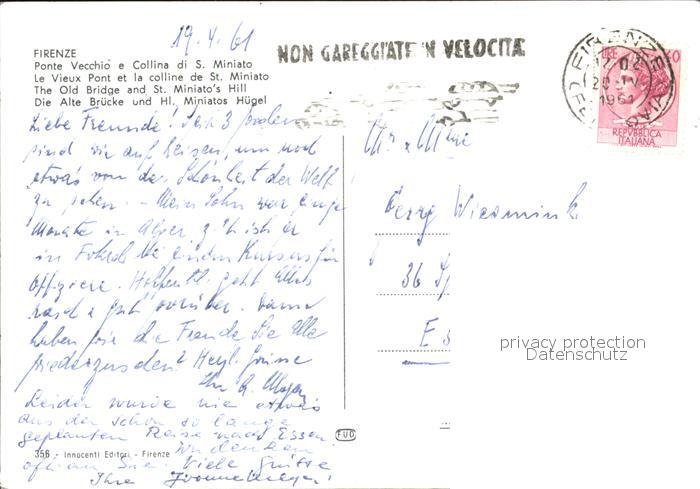 19.4.61
NON GAREGGIATE IN VELOCITÀ
FIRENZE
Ponte Vecchio e Collina di S. Miniato
Le Vieux Pont et la colline de St. Miniato
The Old Bridge and St. Miniato's Hill
Die Alte Brücke und Hl. Miniatos Hügel
FIRENZE
1961
REPVBBLICA
ITALIANA
Liebe Freunde! Seit 3 Wochen
sind wir auf Reisen, um noch
etwas von der Schönheit der Welt
zu sehen. - Mein Sohn war einige
Monate in Alger, z. Zt ist er
in bei einem Kursus für
Offiziere. Hoffentl. geht Alles
rasch & gut vorüber. Wann
haben wir die Freude Sie Alle
wiederzusehen? Herzl. Grüsse
Ihr
Leider wurde nie etwas
aus der schon so lange
geplanten Reise nach Essen.
Wir denken
oft an Sie. Viele Grüsse
Ihre Yvonne
Georg Wiesmink
36
Es
privacy protection
Datenschutz
F.U.D
356 - Innocenti Editori - Firenze